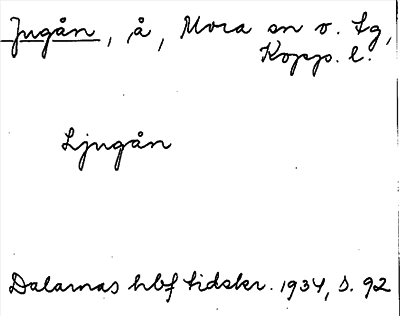 Jugån, å, Mora sn o. tg,
Kopp. l.
Ljugån
Dalarnas hbf tidskr. 1934, s. 92